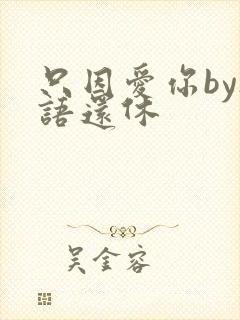 只因愛你by
語還休
吳金容